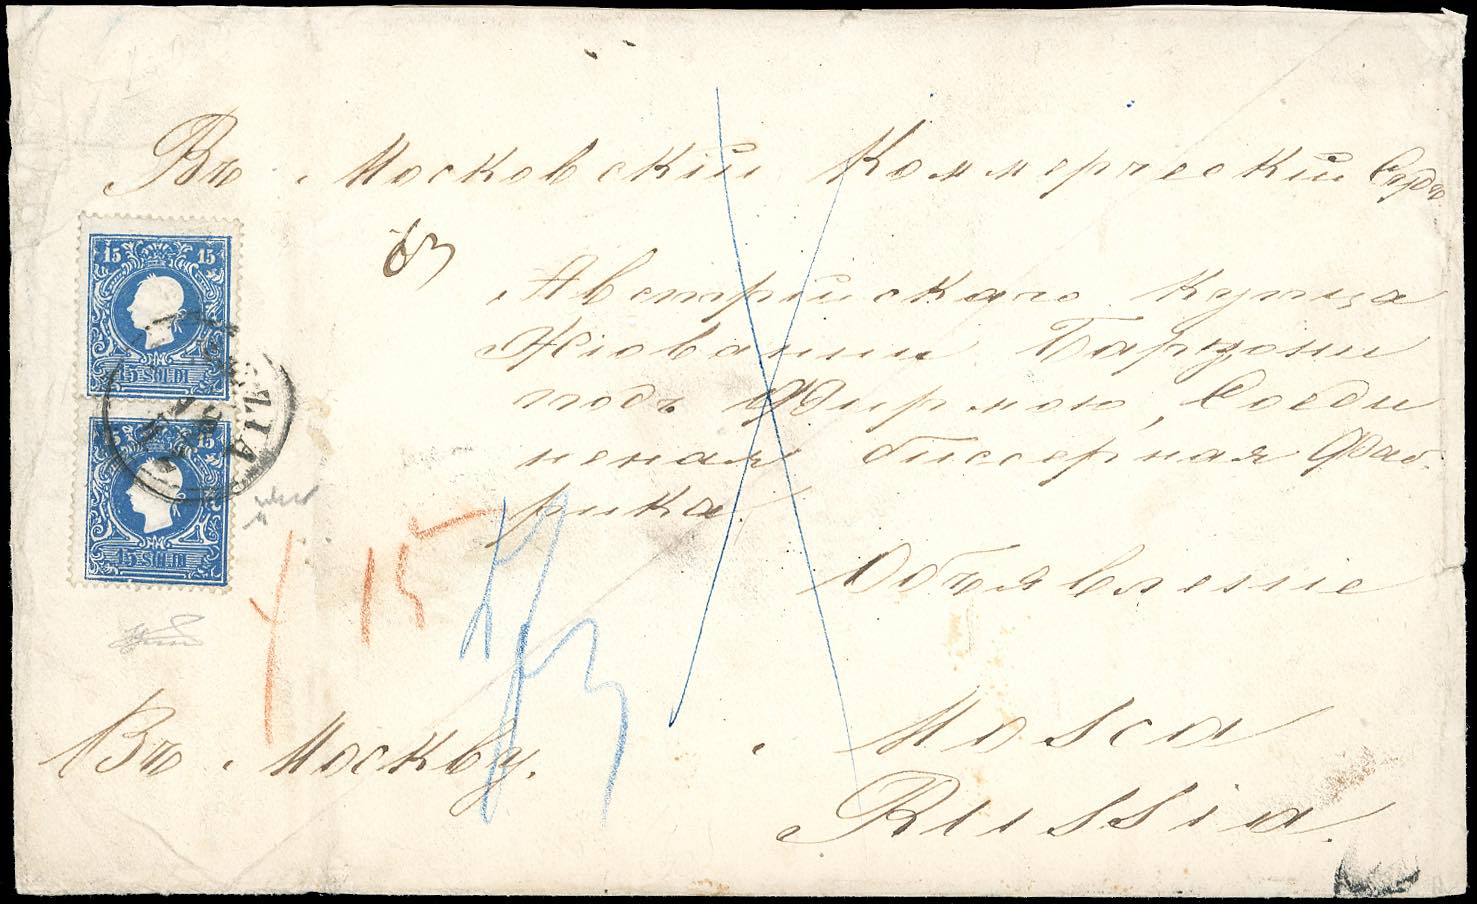 Въ Московскій Коммерческій Судъ
Австрійскаго Купца
Жіованни Барцони
подъ Фирмою, Соеди
неная бисерная Фаб-
рика.
Объявление
Въ Москву.
Mosca
Russia.
15 15
15 SOLDI
15 15
15 SOLDI
15